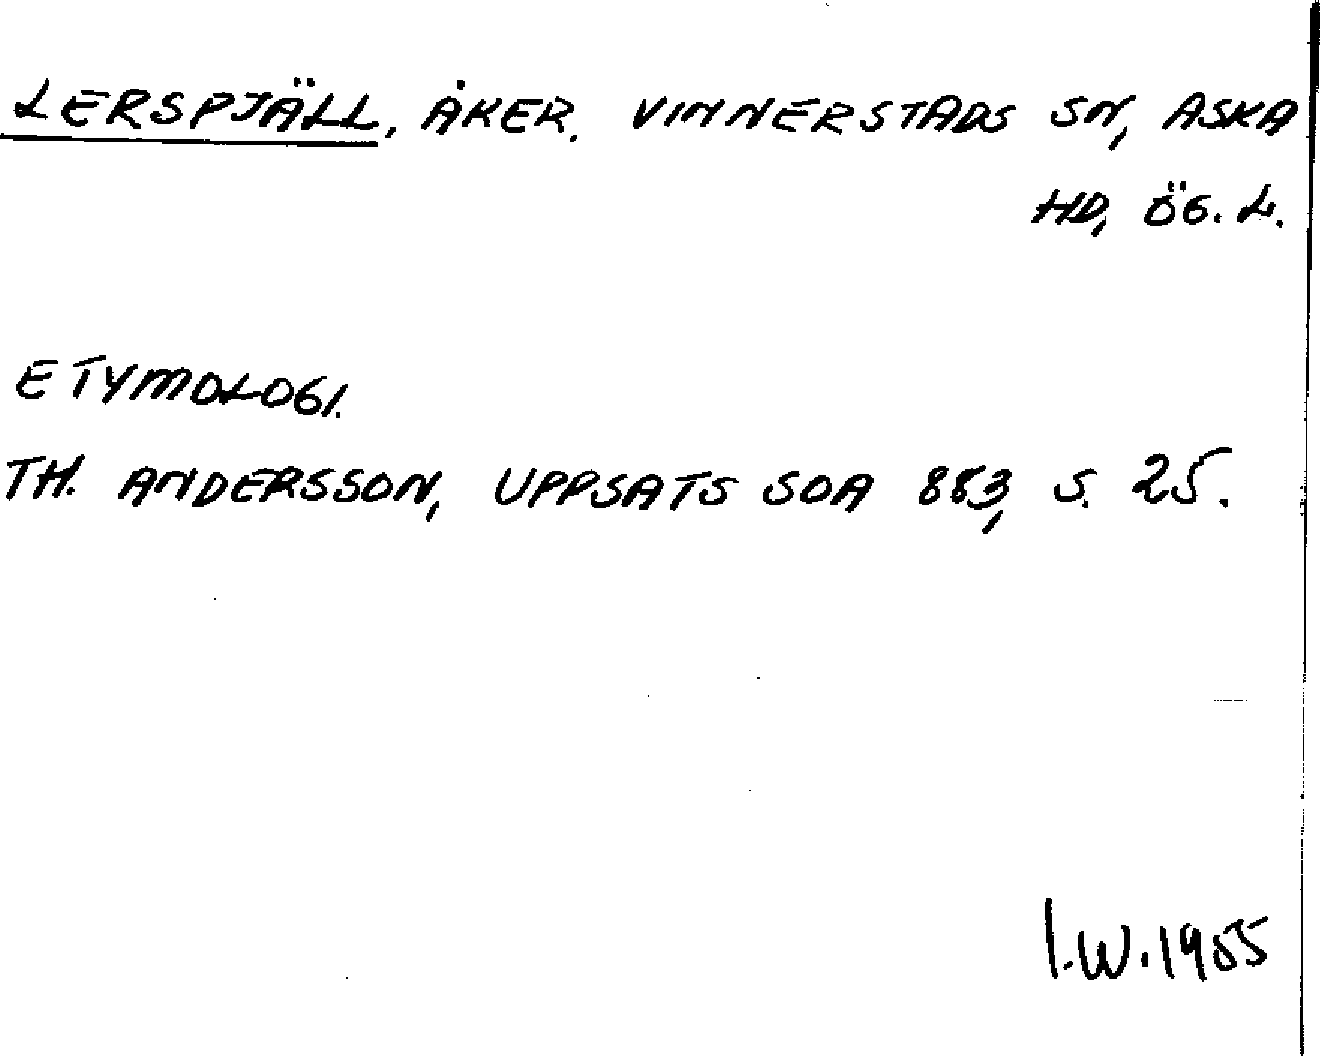 LERSPJÄLL, ÅKER. VINNERSTADS SN, ASKA
HD, ÖG. L.
ETYMOLOGI.
TH. ANDERSSON, UPPSATS SOA 883, S. 25.
I.W. 1955